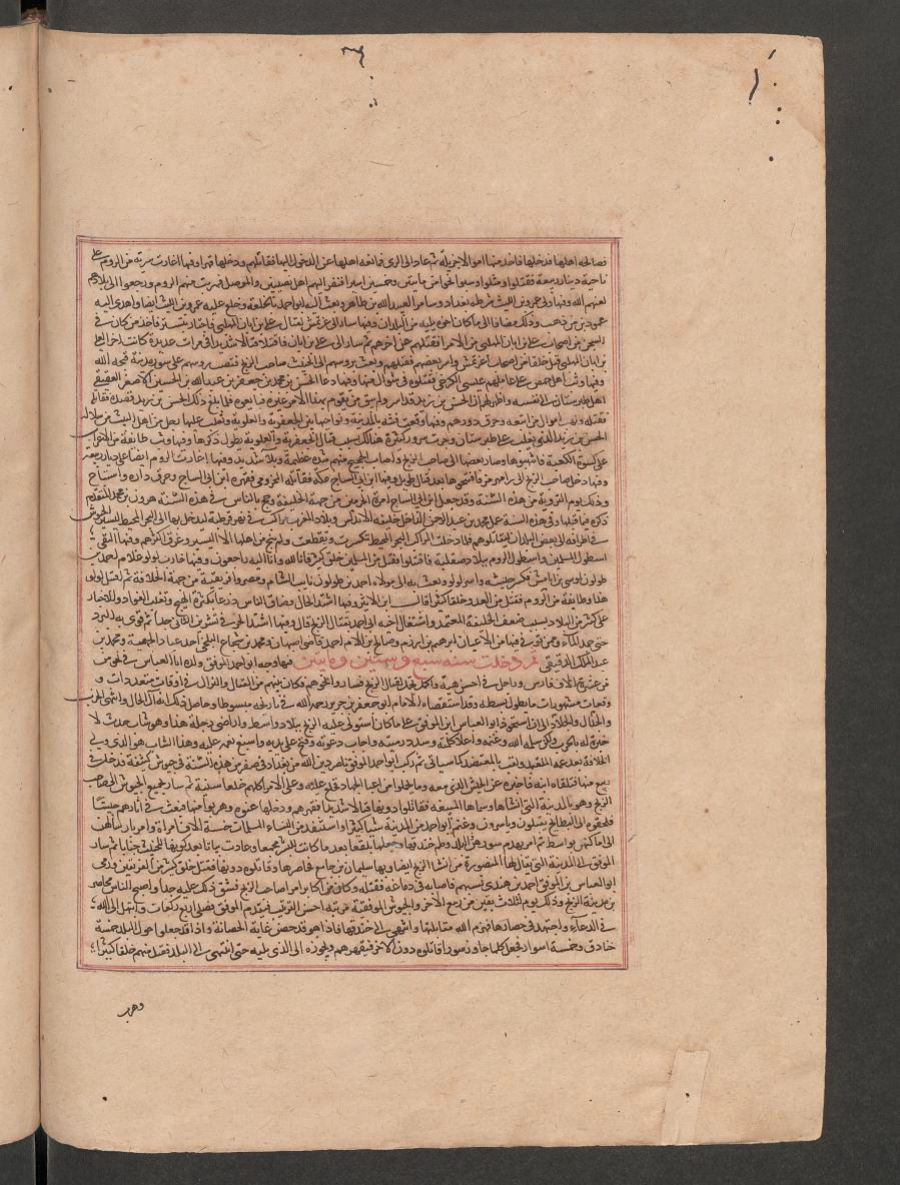 فصالحه اهلها فدخلها فاخذ منها اموالا جزيلة ثم عاد الى الرى فمانعه اهلها عن الدخول اليها فقاتلهم ودخلها قهرا وفيها اغارت سرية من الروم على
ناحية ديار ربيعة فقتلوا ومثلوا وسبوا نحوا من مايتين وخمسين اسيرا فنفر اليهم اهل نصيبين والموصل فهربت منهم الروم ورجعوا الى بلادهم
لعنهم الله وفيها ولى عمرو بن الليث شرطة بغداد وسامرا لعبيد الله بن طاهر وبعث اليه ابو احمد بالخلعة وخلع عليه عمرو بن الليث ايضا واهدى اليه
عمودين من ذهب وذلك مضافا الى ما كان اخوه يليه من البلدان وفيها سار الى قتال على بن ابان المهلبى بتستر فاخذ من كان فى
السجن من اصحاب على بن ابان المهلبى من الامرا فقتلهم عن اخرهم ثم سار الى على بن ابان فاقتتلا قتالا شديدا فى مرات عديدة كانت اخرا لعلى
بن ابان المهلبى قتل خلقا من اصحاب اغرتمش واسر بعضهم فقتلهم وبعث برءوسهم الى الخبيث صاحب الزنج فنصب رءوسهم على سور مدينة قبحه الله
وفيها وثب اهل حمص على عاملهم عيسى الكرخى فقتلوه فى شوال منها وفيها دعا الحسن بن محمد بن جعفر بن عبد الله بن الحسين الاصغر العقيقى
اهل طبرستان الى نفسه واظهر لهم ان الحسن بن زيد قد اسر ولم يبق من يقوم بهذا الامر غيره فبايعوه فلما بلغ ذلك الحسن بن زيد قصده فقاتله
فقتله ونهب اموال من اتبعه وحرق دورهم وفيها وقعت فتنة بالمدينة ونواحيها بين الجعفرية والعلوية وتغلب عليها رجل من اهل البيت من سلالة
الحسن بن زيد الذى تغلب على طبرستان وجرت شرور كثيرة هنالك بسبب قتال الجعفرية والعلوية يطول ذكرها وفيها وثب طايفة من الاعراب
على كسوة الكعبة فانتهبوها وصار بعضها الى صاحب الزنج واصاب الحجيج منهم شدة عظيمة وبلاء شديد وفيها اغارت الروم ايضا على ديار ربيعة
وفيها دخل صاحب الزنج الى رامهرمز فافتتحها بعد قتال طويل وفيها ابن ابى الساج مكة فقاتله المخزومى فقهره ابن ابى الساج وحرق داره واستباح
وذلك يوم التروية من هذه السنة وقد جعل الى ابن ابى الساج امرة الحرمين من جهة الخليفة وحج بالناس فى هذه السنة هرون بن محمد المتقدم
ذكره قبلها وفى هذه السنة عمل محمد بن عبد الرحمن الداخل خليفة الاندلس وبلاد المغرب مراكب فى نهر قرطبة ليدخل بها الى البحر المحيط لتسير الجيوش
فى اطرافه الى بعض البلدان ليقاتلوهم فلما دخلت المراكب البحر المحيط تكسرت وتقطعت ولم ينج من اهلها الا اليسير وغرق اكثرهم وفيها التقى
اسطول المسلمين واسطول الروم ببلاد صقلية فاقتتلوا فقتل من المسلمين خلق كثير فانا لله وانا اليه راجعون وفيها حارب لولو غلام احمد بن
طولون لموسى بن اتامش فكسر جيشه واسره لولو وبعث به الى مولاه احمد بن طولون نايب الشام ومصر وافريقية من جهة الخلافة ثم اقتتل لولو
هذا وطايفة من الروم فقتل من العدو خلقا كثيرا قال ابن الاثير وفيها اشتد الحال وضاق الناس ذرعا بكثرة الهيج وتغلب القواد والاجناد
على كثير من البلاد بسبب ضعف الخليفة المعتمد واشتغال اخيه ابى احمد بقتال الزنج قال وفيها اشتد الحر فى تشرين الثانى جدا ثم قوى به البرد
حتى جمد الماء وممن توفى فيها من الاعيان ابرهيم بن اورمه وصالح بن الامام احمد قاضى اصبهان ومحمد بن شجاع البلخى احد عباد الجهمية ومحمد بن
عبد الملك الدقيقى ثم دخلت سنه سبع وستين ومايتين فيها وجه ابو احمد الموفق ولده ابا العباس فى نحو من
عشرة الاف فارس وراجل فى احسن هيئة واكمل تجمل لقتال الزنج فساروا نحوهم فكان بينهم من القتال والنزال فى اوقات متعددات و
وقعات مشهورات ما يطول بسطه وقد استقصاه الامام ابو جعفر بن جرير رحمه الله فى تاريخه مبسوطا وحاصل ذلك انه آل الحال وانتهى الحرب
والقتال والجلاد الى ان استحوذ ابو العباس ابن الموفق على ما كان استولى عليه الزنج ببلاد واسط واراضى دجلة هذا وهو شاب حدث لا
خبرة له بالحرب ولكن سلمه الله وغنمه واعلا كلمته وسدد رميته واجاب دعوته وفتح على يديه واسبغ نعمه عليه وهذا الشاب هو الذى ولى
الخلافة بعد عمه المعتمد ولقب بالمعتضد كما سياتى ثم ركب ابو احمد الموفق ناصر دين الله من بغداد فى صفر من هذه السنة فى جيوش كثيفة فدخل فى
ربيع منها فتلقاه ابنه فاخبره عن الجيش الذى معه وما تحملوا من اعباء الجهاد فخلع عليه وعلى الامرا كلهم خلعا سنية ثم سار بجميع الجيوش الى صاحب
الزنج وهو بالمدينة التى انشاها وسماها المنيعة فقاتلوا دونها قتالا شديدا فقهرهم ودخلها عنوة وهربوا منها فبعث فى اثارهم جيشا
فلحقوهم الى البطايح يقتلون وياسرون وغنم ابو احمد من المدينة شيا كثيرا واستنقذ من النساء المسلمات خمسة الاف امراة وامر بارسالهن
الى اهاليهن بواسط ثم امر بهدم سور هذه البلد وطم خندقها وجعلها بلقعا بعد ما كانت للشر مجمعا ثم سار
الموفق الى المدينة التى يقال لها المنصورة من انشا الزنج ايضا وبها سليمان بن جامع فحاصرها وقاتلوه دونها فقتل خلق كثير من الفريقين ورمى
ابو العباس بن الموفق احمد بن هندى بسهم فاصابه فى دماغه فقتله وكان من اكابر امرا صاحب الزنج فشق ذلك عليه جدا واصبح الناس محاصرين
مدينة الزنج وذلك يوم الثلاث بقين من ربيع الاخر والجيوش الموفقية مرتبة احسن الترتيب فتقدم الموفق فصلى اربع ركعات وابتهل الى الله
فى الدعاء واجتهد فى حصارها فهزم الله مقاتلتها وانتهى الى خندقها فاذا هو قد حصن غاية الحصانة واذا قد جعلوا حول البلد خمسة
خنادق وخمسة اسوار فجعل كلما جاوز سورا قاتلوه دون الاخر فيقهرهم ويجوزه الى الذى يليه حتى انتهى الى البلد فقتل منهم خلقا كثيرا
وهرب